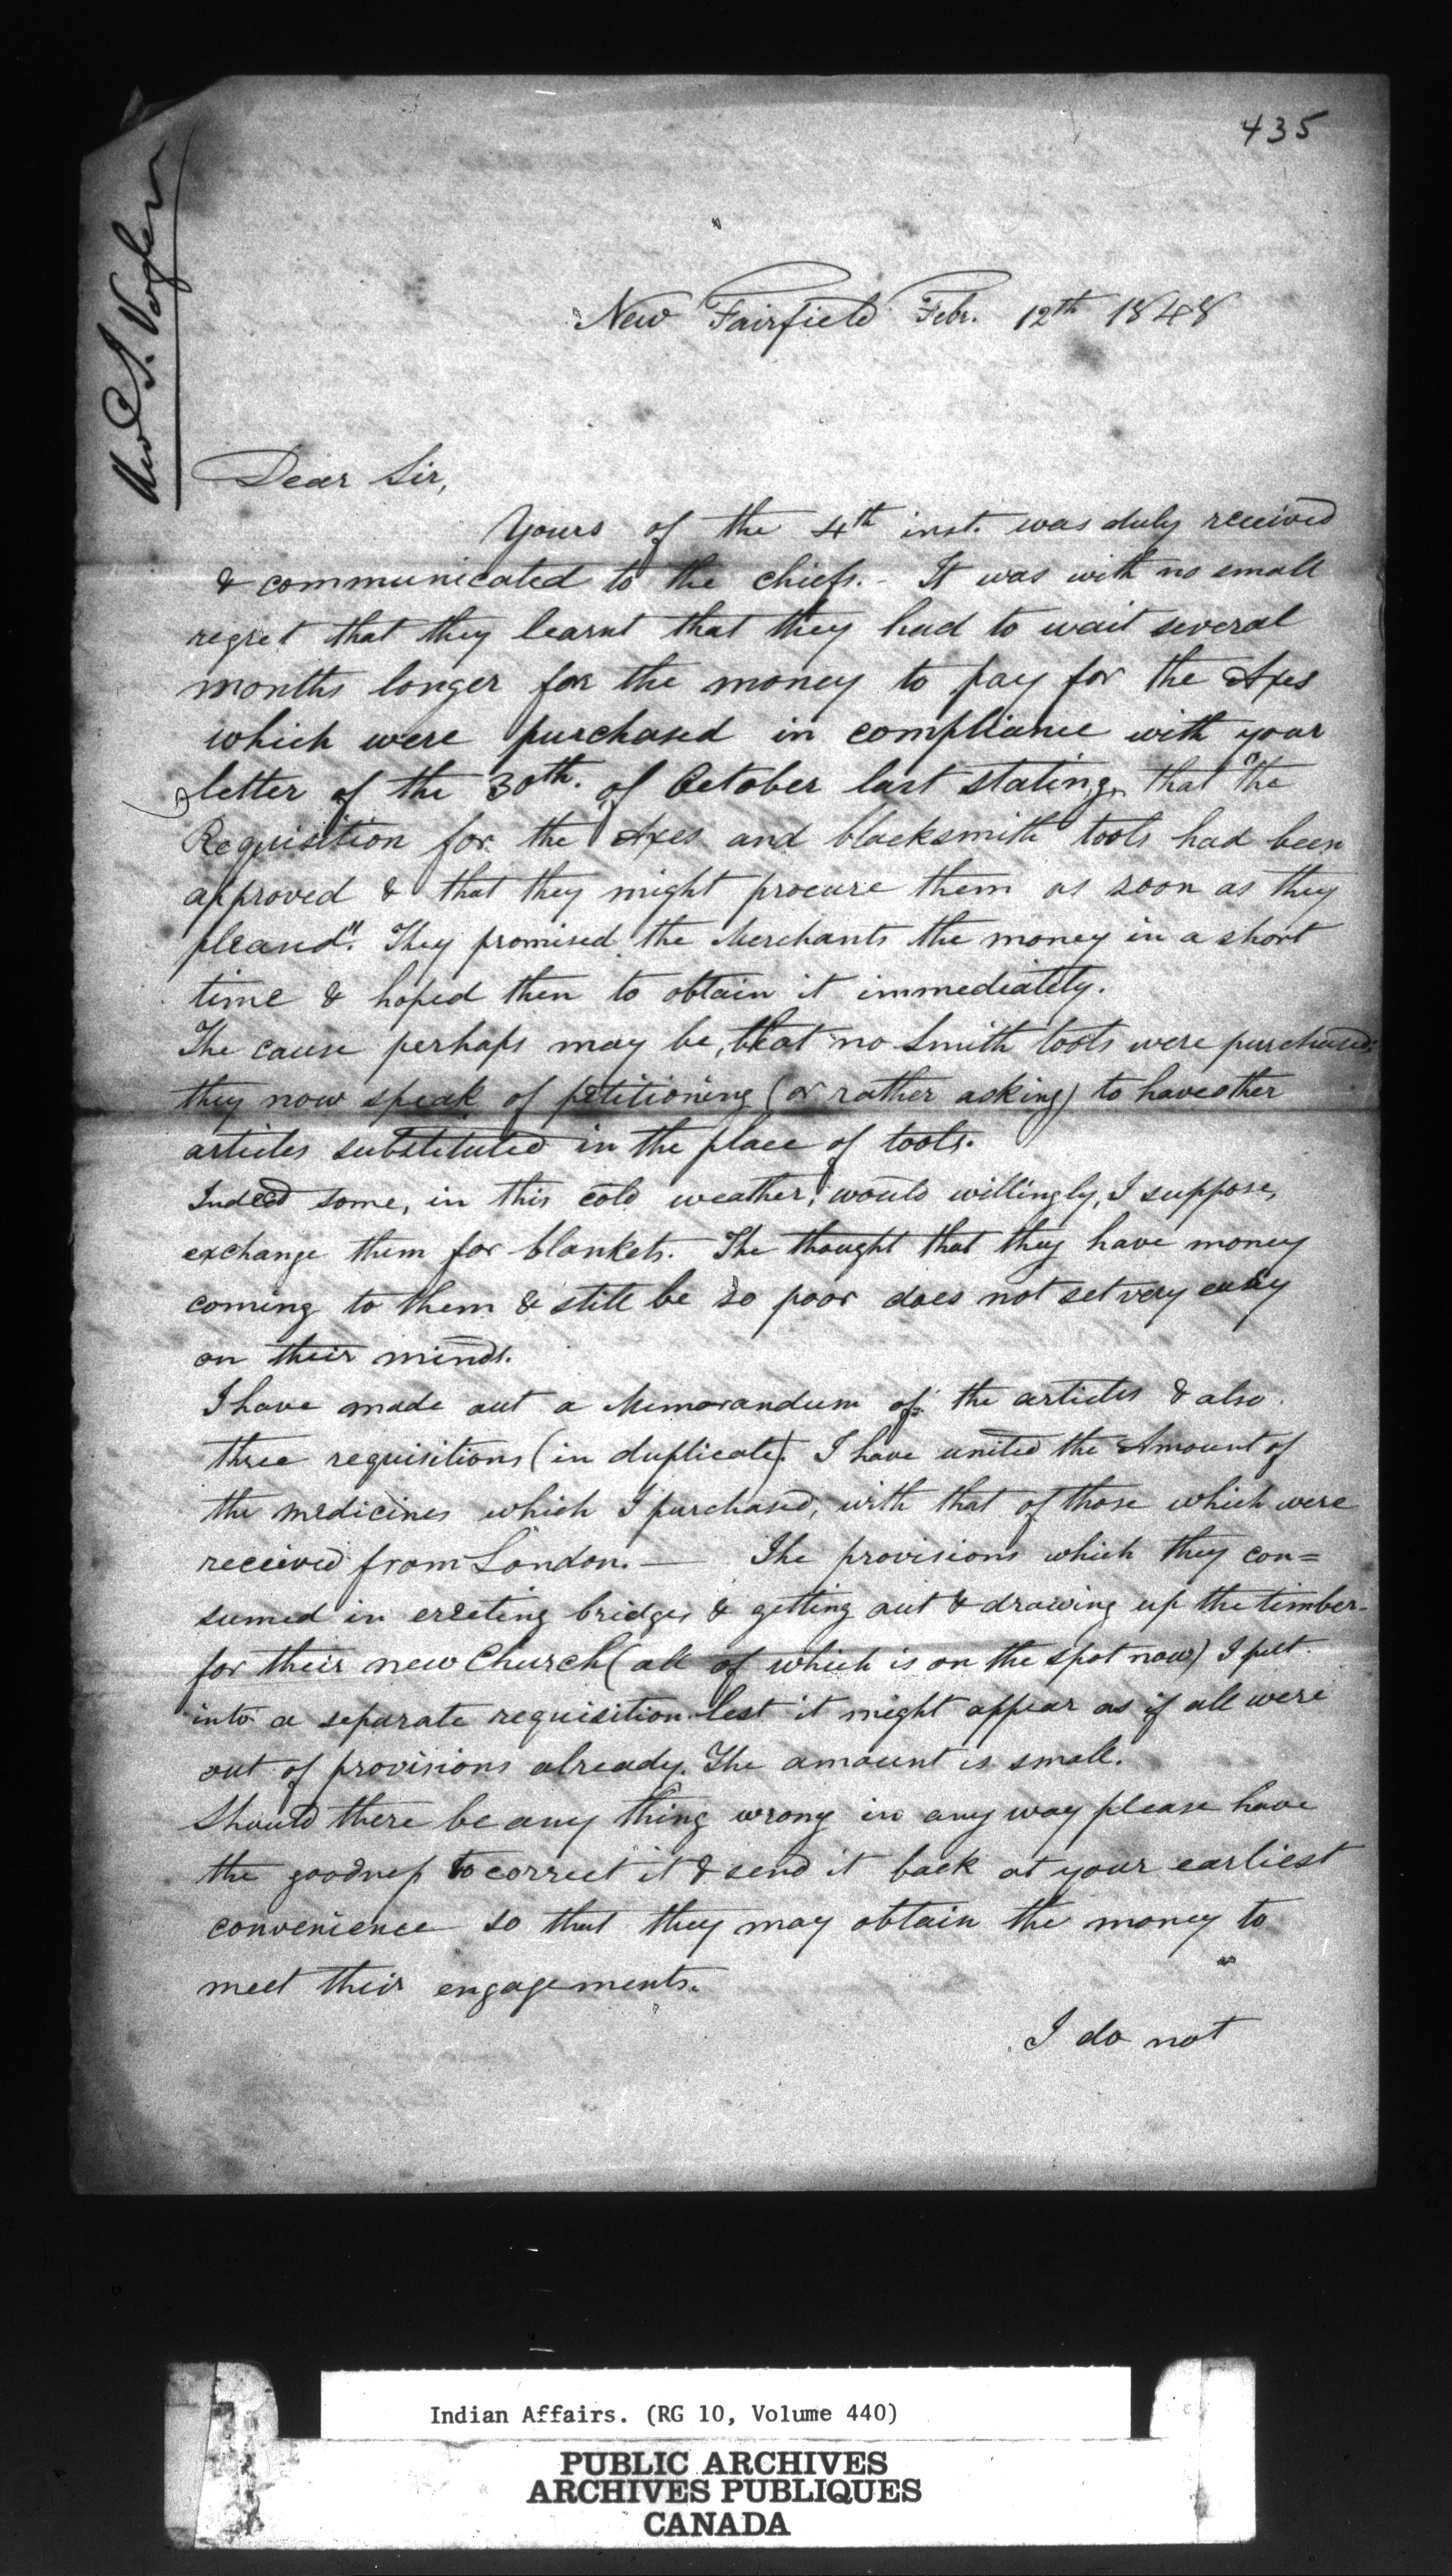 435
Rev J. Vogler
New Fairfield Febr. 12th 1848
Dear Sir,
Yours of the 4th inst. was duly received
& communicated to the chiefs.- It was with no small
regret that they learnt that they had to wait several
months longer for the money to pay for the Axes
which were purchased in compliance with your
letter of the 30th. of October last stating, that "the
Requisition for the Axes and blacksmith tools had been
approved & that they might procure them as soon as they
pleased". They promised the Merchants the money in a short
time & hoped then to obtain it immediately.
The cause perhaps may be, that no Smith tools were purchased;
they now speak of petitioning (or rather asking) to have other
articles substituted in the place of tools.
Indeed some, in this cold weather, would willingly, I suppose,
exchange them for blankets. The thought that they have money
coming to them & still be so poor does not set very easy
on their minds.
I have made out a Memorandum of the articles & also
three requisitions (in duplicate). I have united the Amount of
the medicines which I purchased, with that of those which were
received from London. — The provisions which they con=
sumed in erecting bridges & getting out & drawing up the timber
for their new Church (all of which is on the spot now) I put
into a separate requisition lest it might appear as if all were
out of provisions already. The amount is small.
Should there be any thing wrong in any way please have
the goodness to correct it & send it back at your earliest
convenience so that they may obtain the money to
meet their engagements.
I do not
Indian Affairs. (RG 10, Volume 440)
PUBLIC ARCHIVES
ARCHIVES PUBLIQUES
CANADA